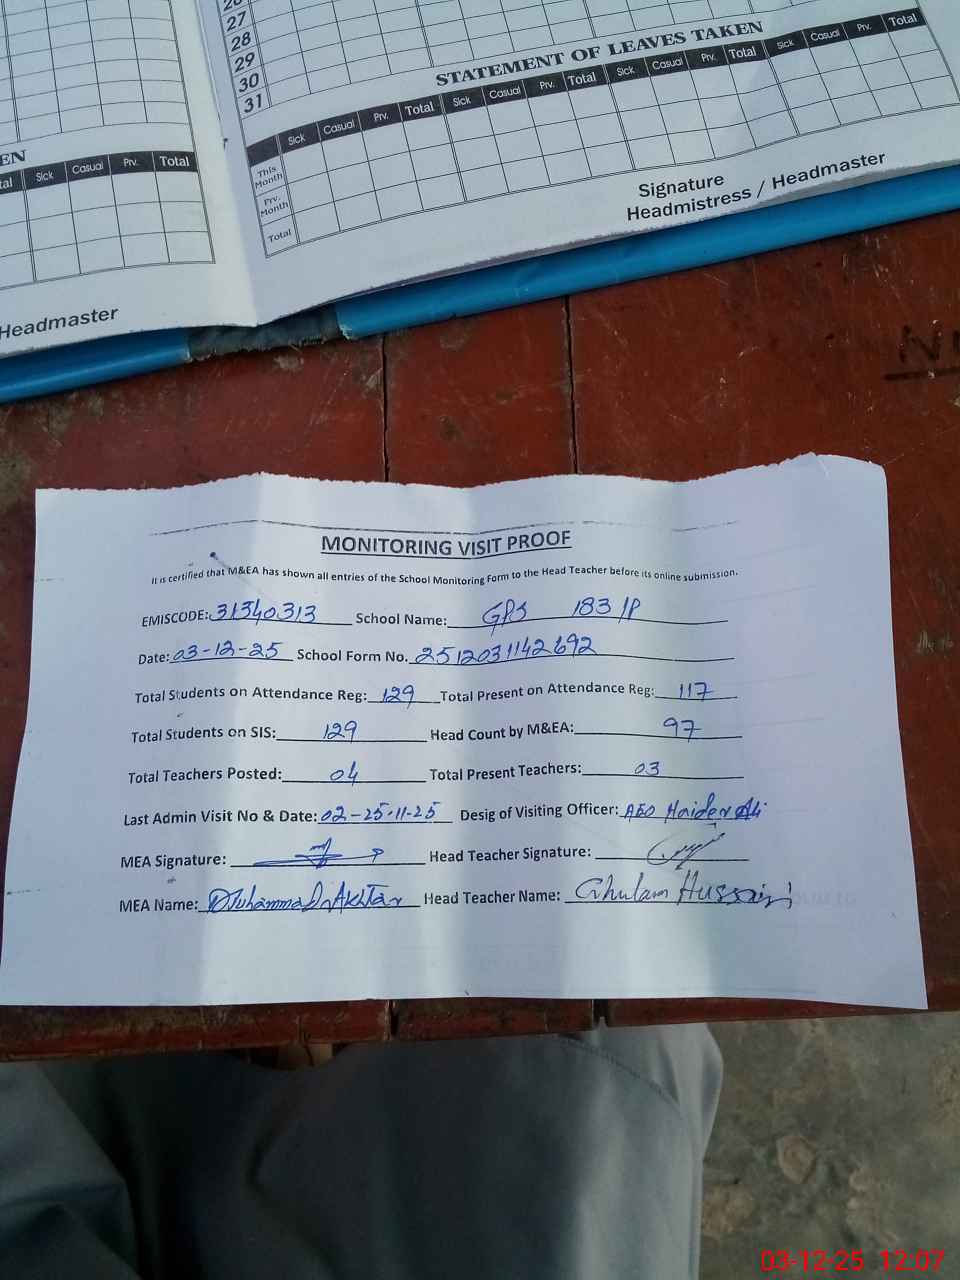 26
27
28
29
30
31
STATEMENT OF LEAVES TAKEN
Sick Casual Prv. Total Sick Casual Prv. Total Sick Casual Prv. Total Sick Casual Prv. Total
This Month
Prv. Month
Total
Signature
Headmistress / Headmaster
EN
tal Sick Casual Prv. Total
Headmaster
MONITORING VISIT PROOF
It is certified that M&EA has shown all entries of the School Monitoring Form to the Head Teacher before its online submission.
EMISCODE: 31340313 School Name: GPS 183/P
Date: 03-12-25 School Form No. 2512031142692
Total Students on Attendance Reg: 129 Total Present on Attendance Reg: 117
Total Students on SIS: 129 Head Count by M&EA: 97
Total Teachers Posted: 04 Total Present Teachers: 03
Last Admin Visit No & Date: 02-25-11-25 Desig of Visiting Officer: AEO Haider Ali
MEA Signature: Head Teacher Signature:
MEA Name: Muhammad Akhtar Head Teacher Name: Ghulam Hussain
03-12-25 12:07